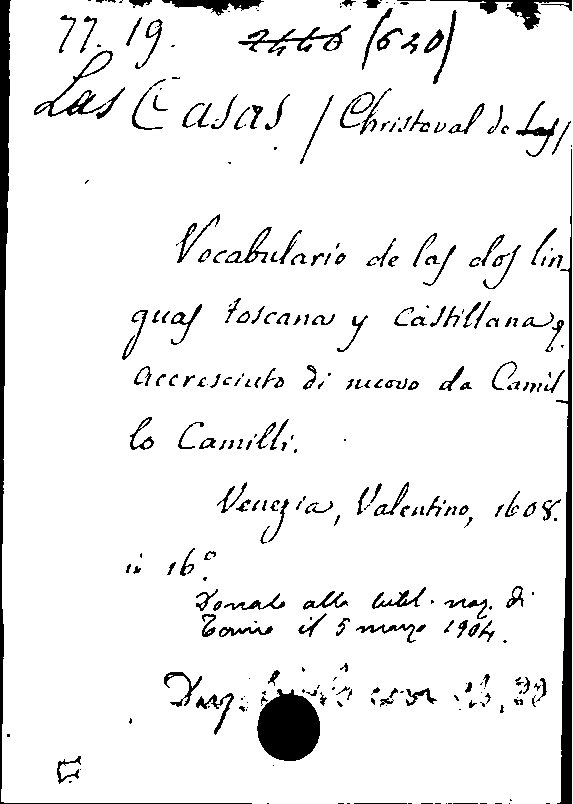 77. 19. 2446 (620)
Las Casas / Christoval de Las /
Vocabulario de las dos lin_
guas toscana y castillana,
accresciuto di nuovo da Camil_
lo Camilli.
Venezia, Valentino, 1608.
in 16°.
Donato alla bibl. naz. di
Torino il 5 marzo 1904.